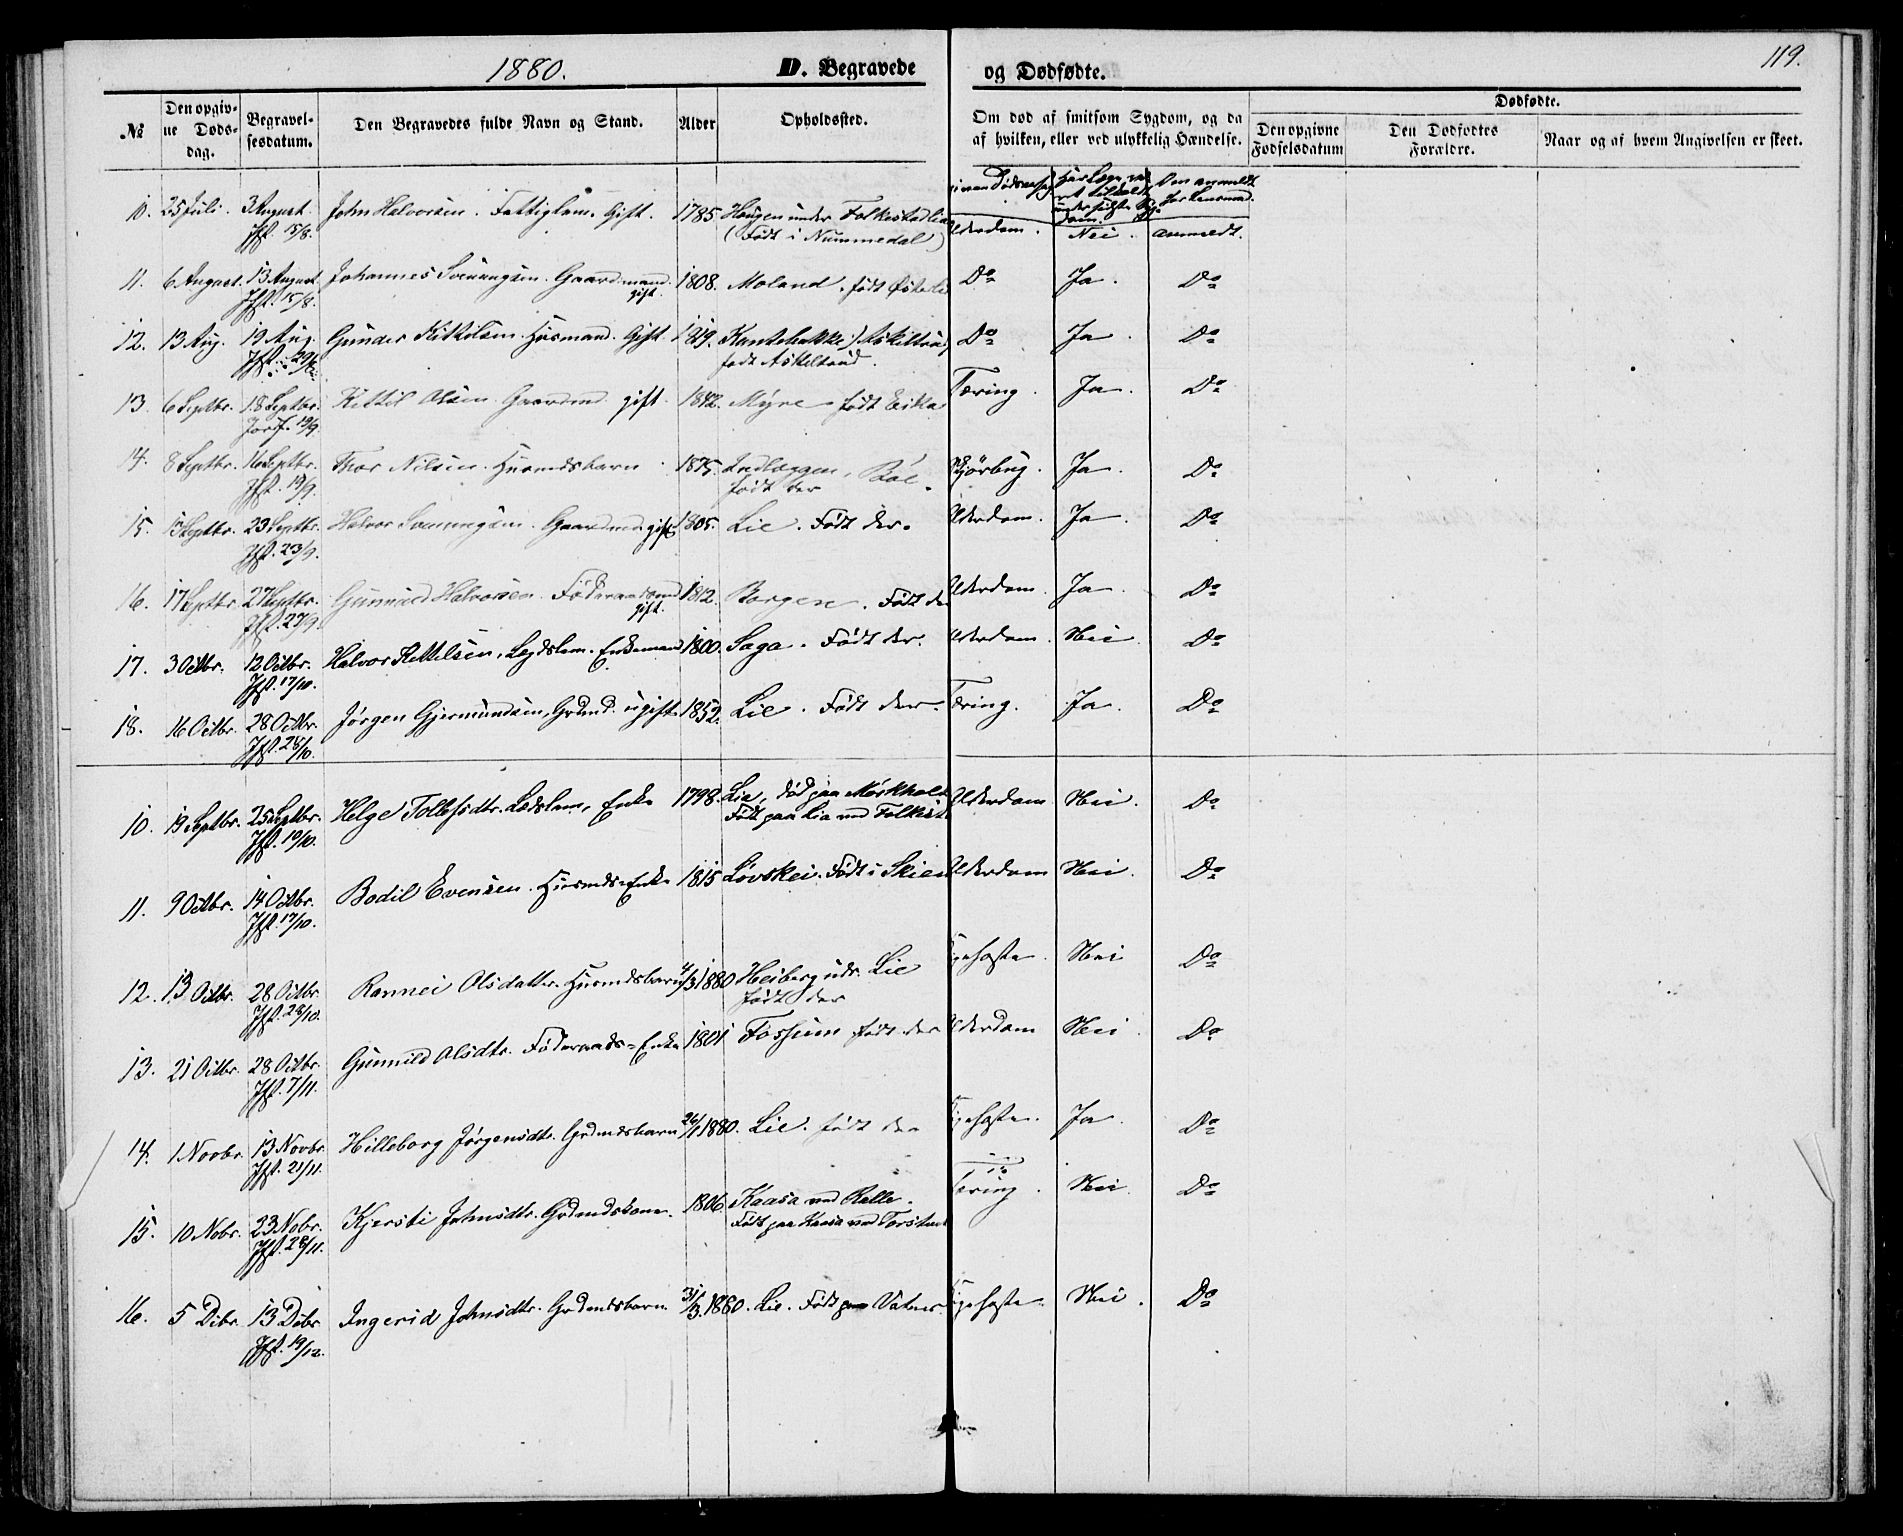 1880.
D. Begravede
og Dødfødte.
119.
№
Den opgivne Dødsdag.
Begravelsesdatum.
Den Begravedes fulde Navn og Stand.
Alder
Opholdssted.
Om død af smitsom Sygdom, og da af hvilken, eller ved ulykkelig Hændelse.
Dødfødte.
Den opgivne Fødselsdatum
Den Dødfødtes Forældre.
Naar og af hvem Angivelsen er skeet.
10. 25 Juli. 3 August. John Halvorsen. Fattiglem. Gift. 1785 Haugen under Folkestadlia Alderdom. Nei. anmeldt.
Jfst. 15/8. (Født i Nummedal)
11. 6 August. 13 August Johannes Svenungsen. Gaardmand. 1808. Moland. født Østerli Do Ja. Do
Jfst. 15/8. gift.
12. 13 Aug. 19 Aug. Gunder Kittilsen. Husmand. Gift. 1819. Do Ja. Do
Jfst. 29/8. født Askiltrud.
13. 6 Septbr. 18 Septbr. Kittil Olsen. Gaardmd. gift. 1842. Myre født Eika Tæring. Ja. Do
Jordf. 19/9.
14. 8 Septbr. 16 Septbr. Thor Nilsen. Husmdsbarn. 1875. Indlæggen, Bøe. Skjørbug. Ja. Do
Jfst. 19/9. født der
15. 15 Septbr. 23 Septbr. Halvor Svenungsen. Gaardmd. gift 1805. Lie. Født der. Alderdom. Ja. Do
Jfst. 23/9.
16. 17 Septbr. 27 Septbr. Gunnuld Halvorsen. Føderaadsmd 1812. Borgen. Født der Alderdom. Ja. Do
Jfst. 27/9. gift.
17. 3 Octbr. 12 Octbr. Halvor Kittilsen. Legdslem. Enkemand 1800. Saga. Født der. Alderdom. Nei Do
Jfst. 17/10.
18. 16 Octbr. 28 Octbr. Jørgen Gjermundsen, Grdmd. ugift. 1852. Lie. Født der. Tæring. Ja. Do
Jfst. 28/10.
10. 19 Septbr. 25 Septbr. Helge Tollefsdtr. Legdslem, Enke 1798. Lie, død paa Mørkhole Alderdom Nei. Do
Jfst. 10/10. Født paa Lia ved Folkest
11. 9 Octbr. 14 Octbr. Bodil Evensen. Husmds-Enke 1815 Løvskei. Født i Skien Alderdom Nei. Do
Jfst. 17/10.
12. 13 Octbr. 28 Octbr. Rannei Olsdatter. Husmdsbarn 4/3 1880 Heiberg udr. Lie Kighoste. Nei Do
Jfst. 28/10. født der
13. 21 Octbr. 28 Octbr. Gunnild Olsdtr. Føderaads-Enke 1801 Fossum født der Alderdom Nei. Do
Jfst. 7/11.
14. 1 Novbr. 13 Novbr. Hilleborg Jørgensdtr. Grdmdsbarn 26/1 1880. Lie. født der Kighoste. Ja. Do
Jfst. 21/11.
15. 10 Nobr. 23 Nobr. Kjersti Johnsdtr. Grdmdskone. 1806. Kaasa ved Kelle. Tæring. Nei. Do
Jfst. 28/11. Født paa Kaasa ved Torstved
16. 5 Dcbr. 13 Dcbr. Ingerid Johnsdtr. Grdmdsbarn. 31/3 1880. Lie. Født paa Vatnar Kighoste. Nei. Do
Jfst. 19/12.